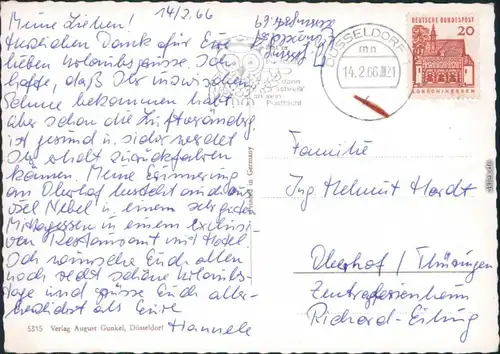 Meine Lieben! 14/2.66
herzlichen Dank für Eure
lieben Urlaubsgrüsse. Ich
hoffe, daß Ihr inzwischen
Sonne bekommen habt
aber schon die Luftveränderg.
ist gesund u. sicher werdet
Ihr erholt zurückfahren
können. Meine Erinnerung
an Oberhof besteht auch aus
viel Nebel u. einem sehr guten
Mittagessen in einem exclusi-
ven Restaurant mit Hotel.
Ich wünsche Euch allen
noch recht schöne Urlaubs-
tage und grüsse Euch aller-
herzlichst als Eure
Hannele
5315 Verlag August Gunkel, Düsseldorf
Printed in Germany
DÜSSELDORF 1
mn
14.2.66 21
Postfach
DEUTSCHE BUNDESPOST
20
LORSCH/HESSEN
Familie
Ing. Helmut Hardt
Oberhof / Thüringen
Zentralferienheim
Richard-Eiling